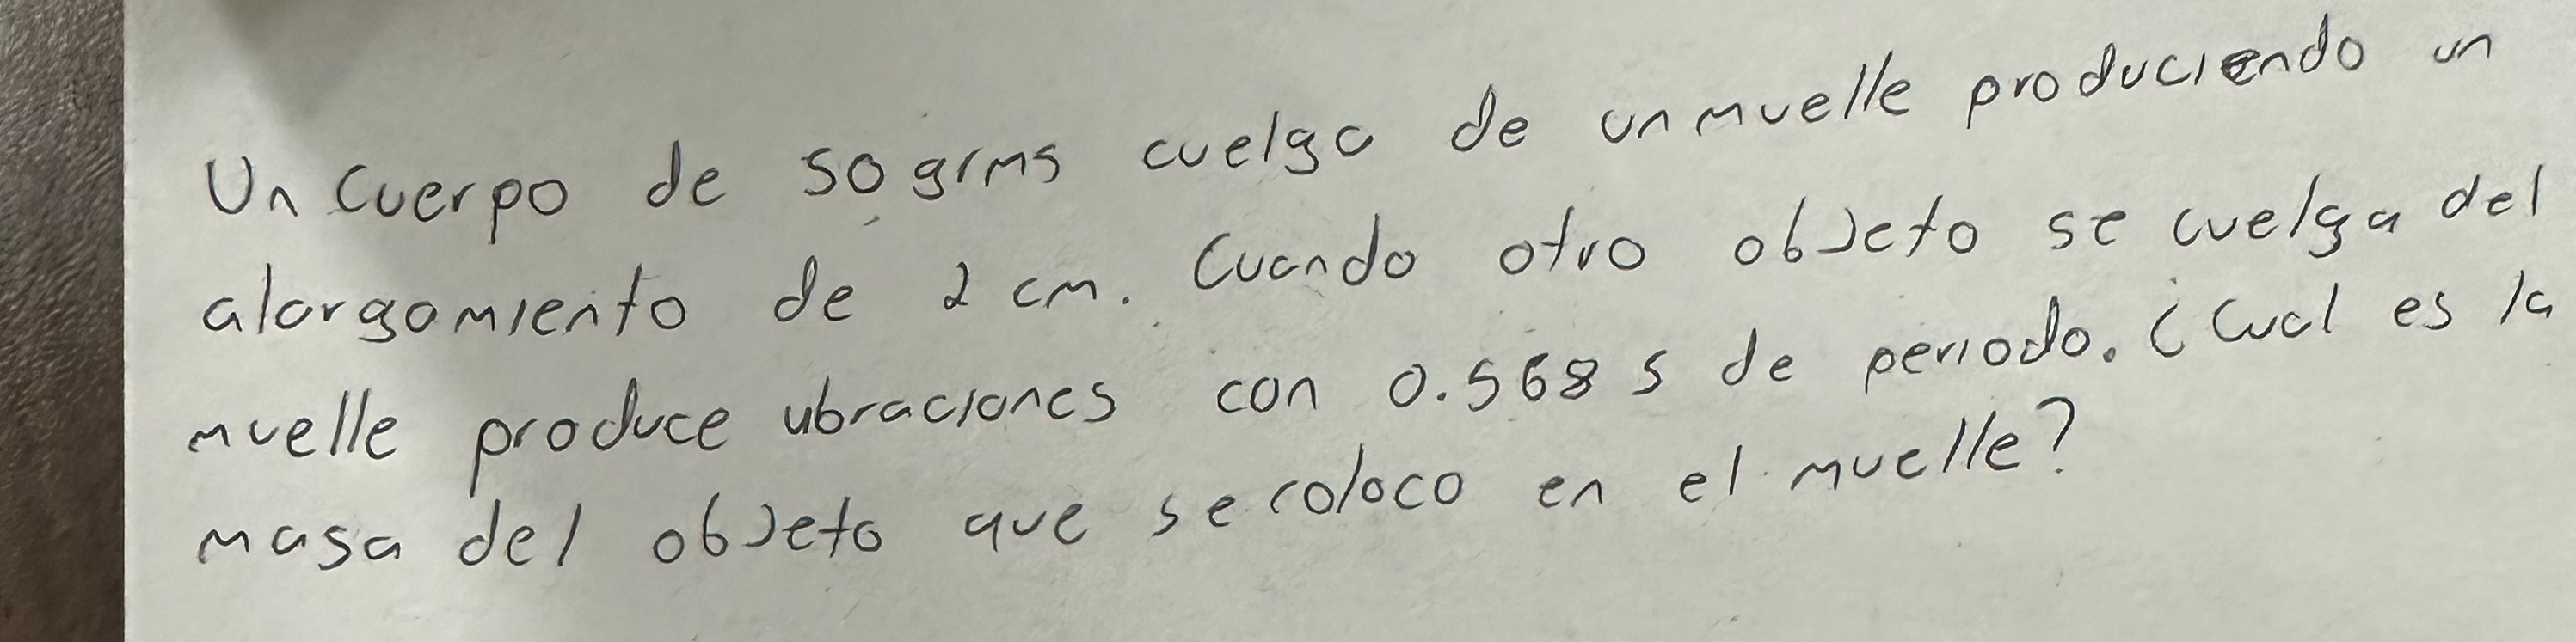 Un cuerpo de 50 grms cuelga de un muelle produciendo un
alargamiento de 2 cm. Cuando otro objeto se cuelga del
muelle produce vibraciones con 0.568 s de periodo. ¿Cual es la
masa del objeto que se coloco en el muelle?